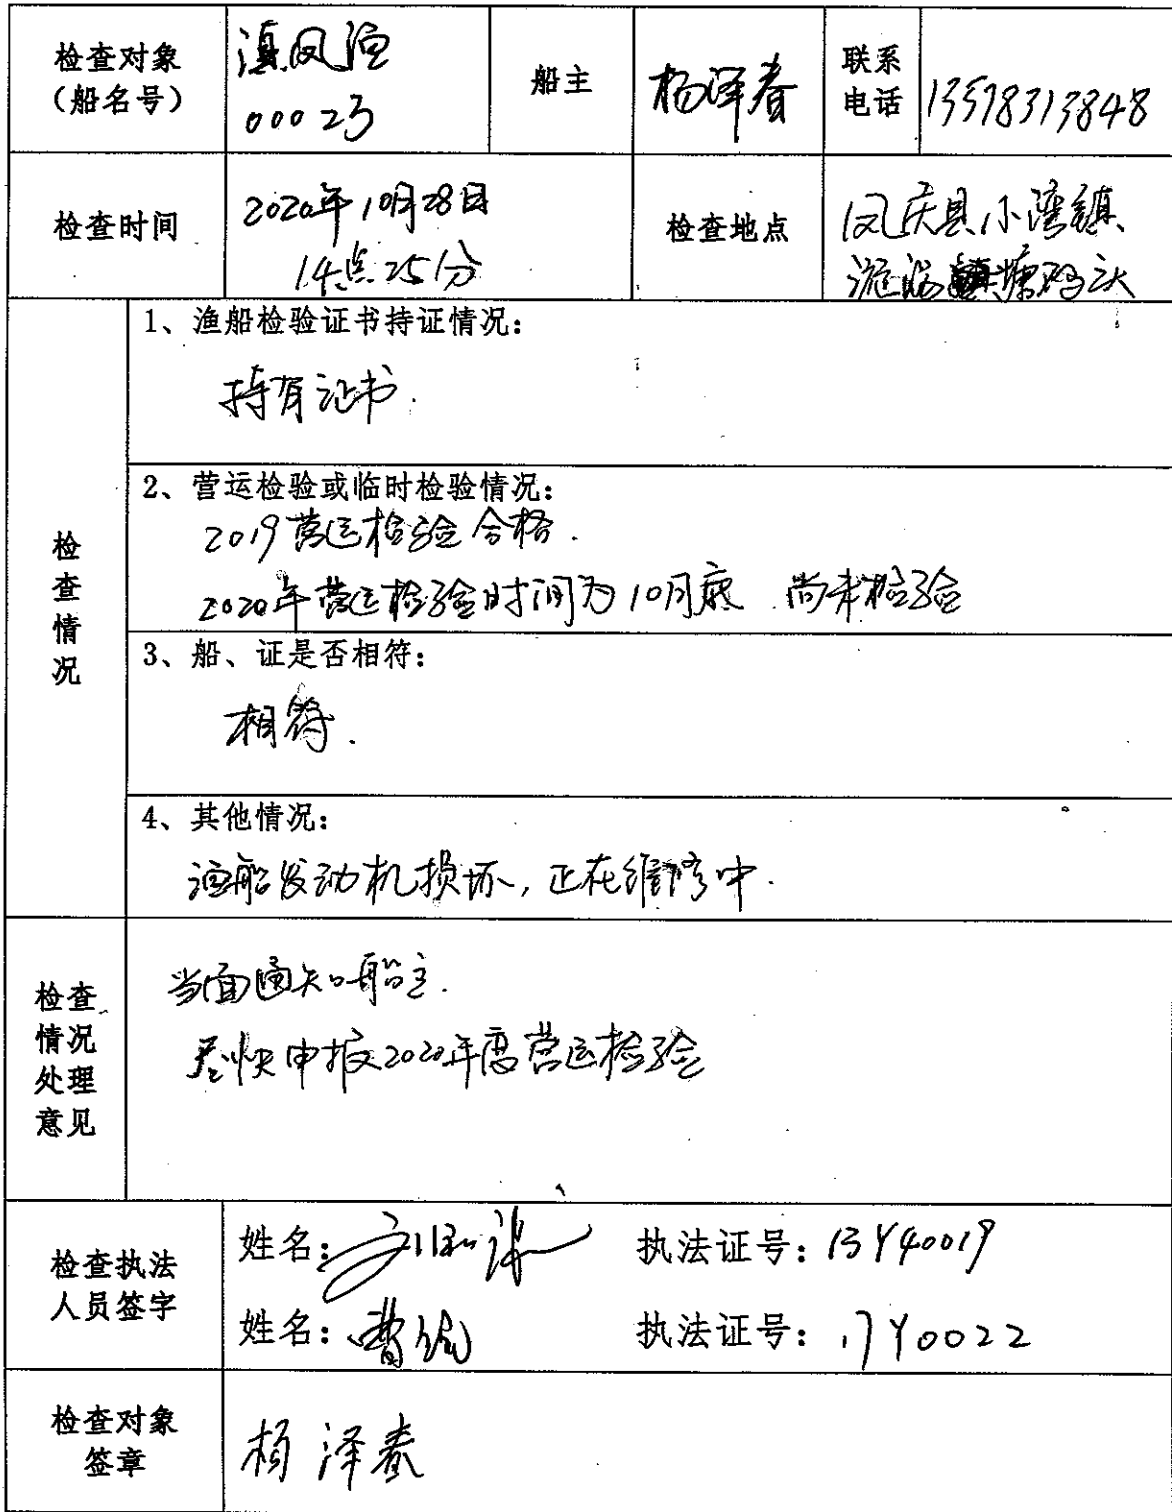 检查对象
（船名号）
滇凤渔
00023
船主
杨泽春
联系
电话
13578313848
检查时间
2020年10月28日
14点25分
检查地点
凤庆县小湾镇、
码头
检查情况
1、渔船检验证书持证情况：
持有证书.
2、营运检验或临时检验情况：
2019营运检验合格.
2020年营运检验时间为10月底.尚未检验
3、船、证是否相符：
相符.
4、其他情况：
渔船发动机损坏,正在维修中.
检查
情况
处理
意见
当面通知船主.
尽快申报2020年度营运检验
检查执法
人员签字
姓名：
执法证号：13Y40019
姓名：曹
执法证号：17Y0022
检查对象
签章
杨泽春